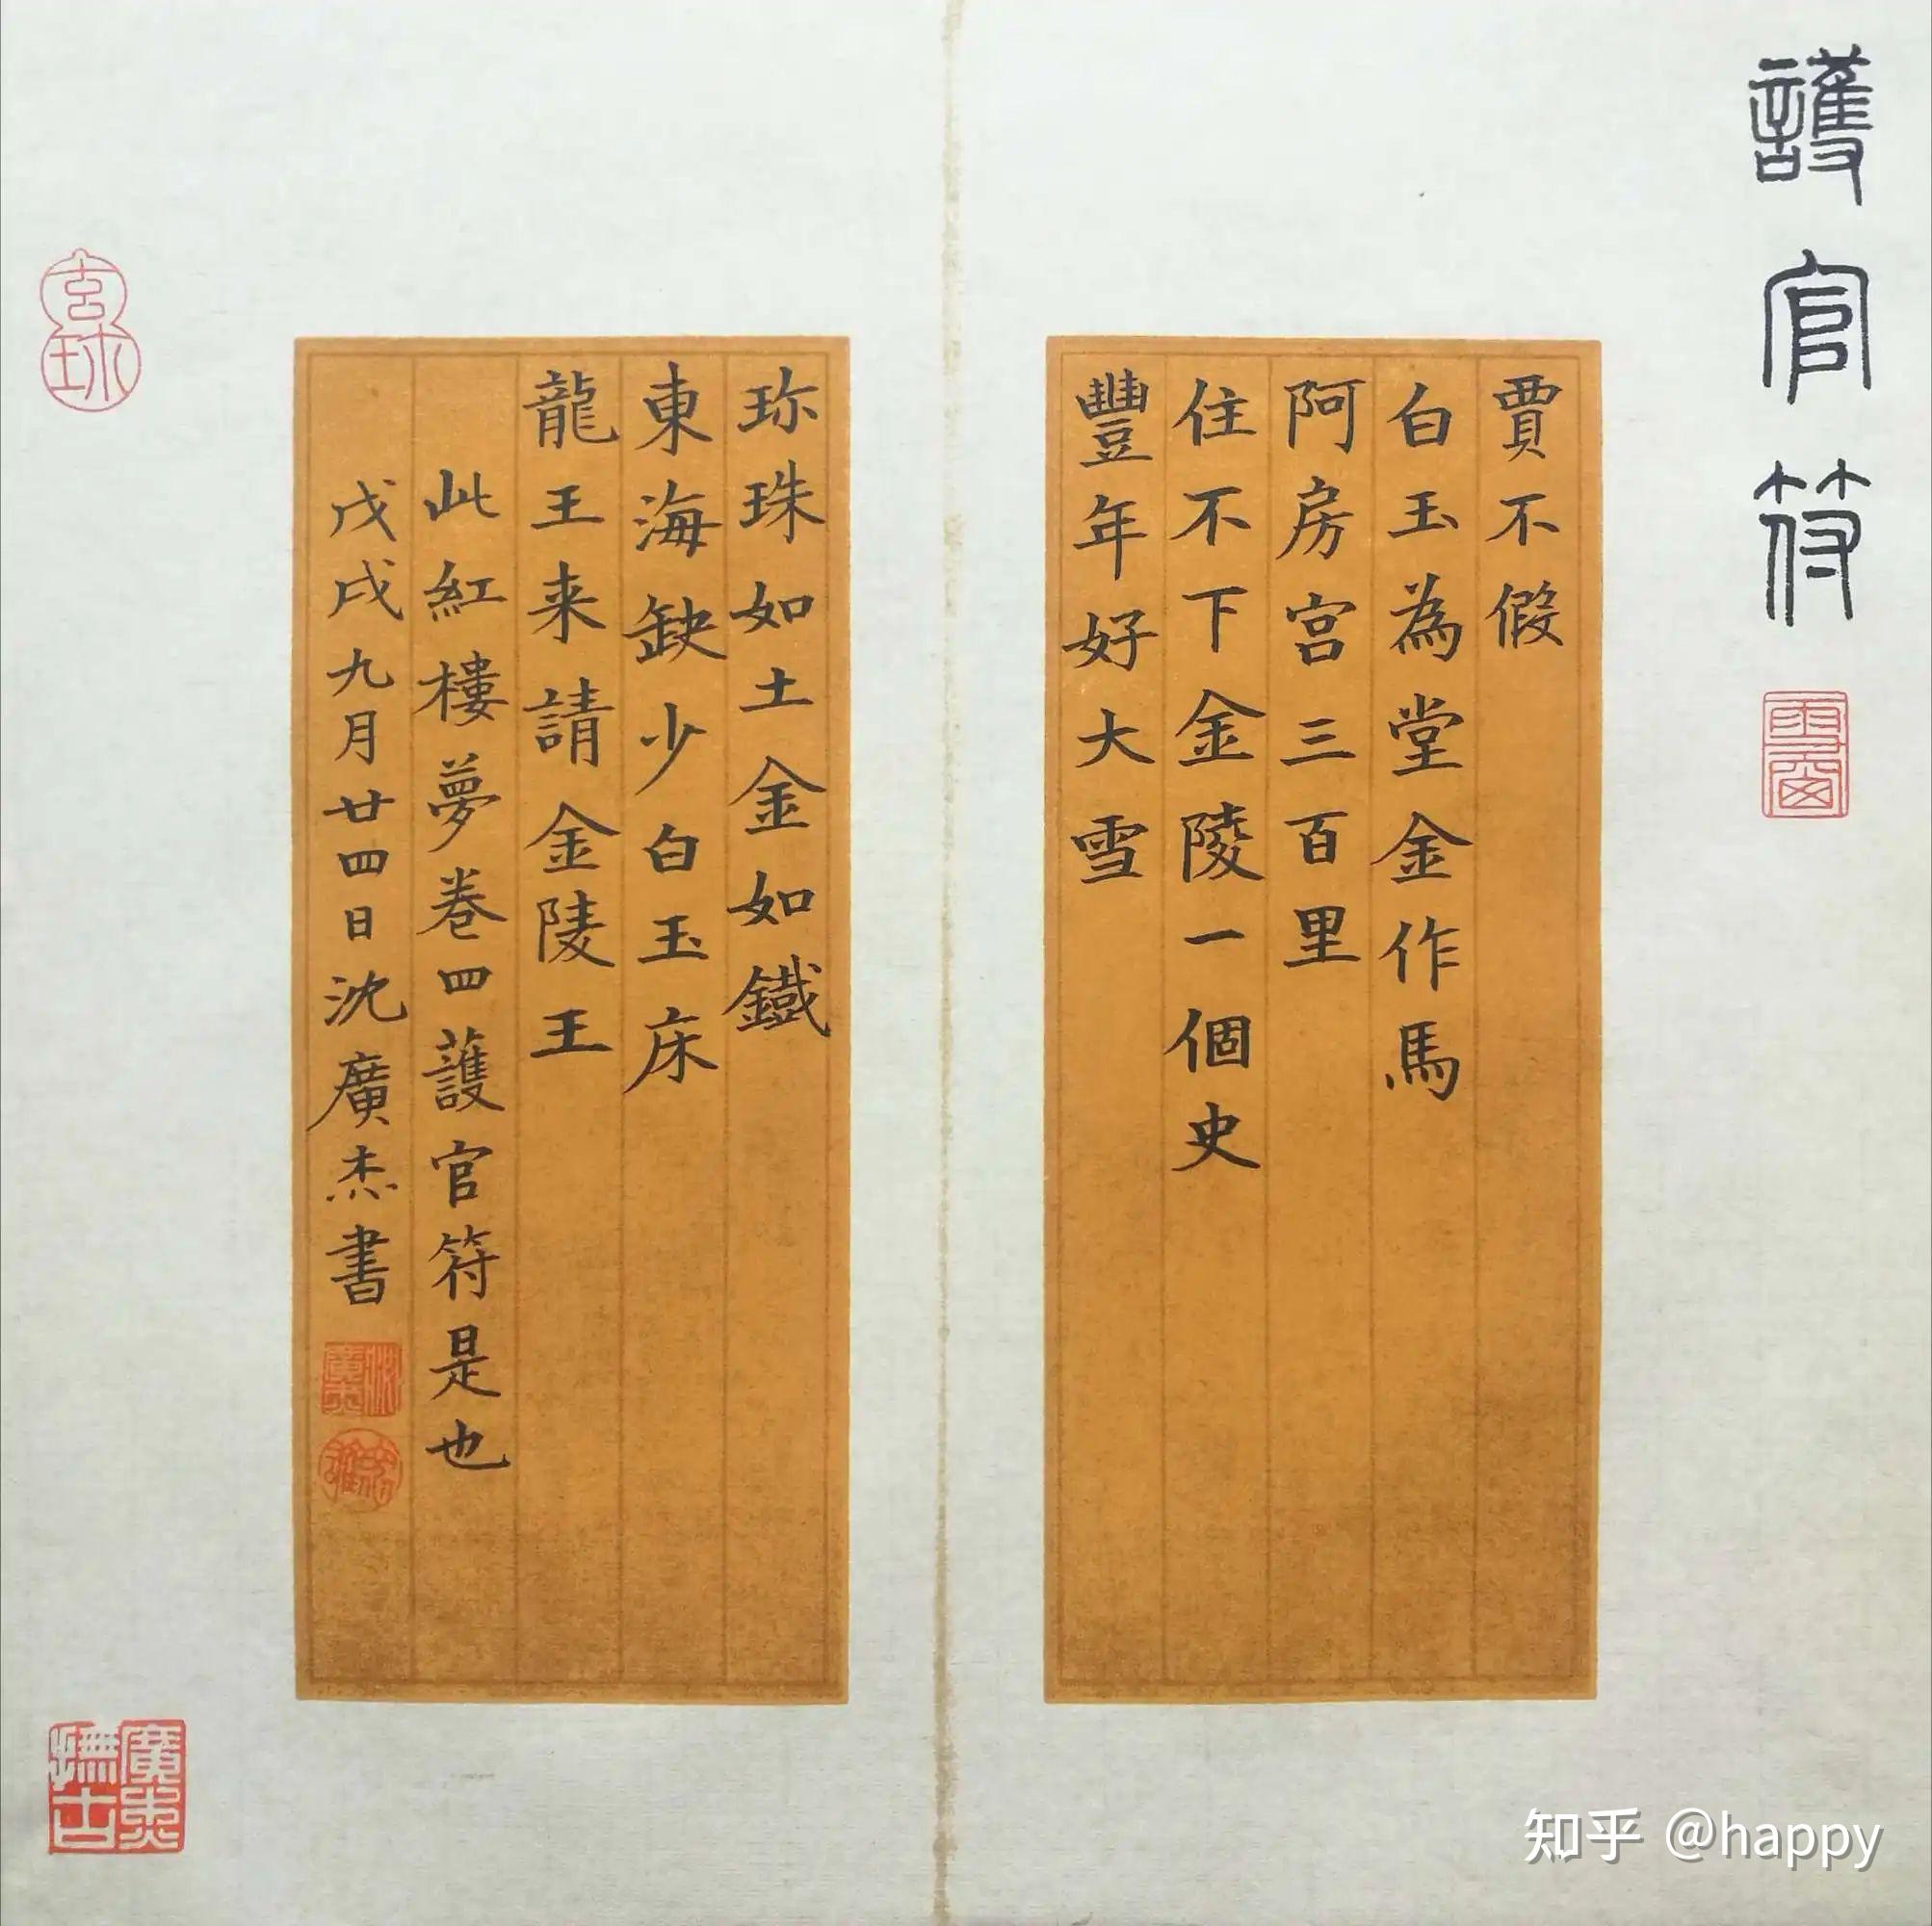 護官符
賈不假
白玉為堂金作馬
阿房宮三百里
住不下金陵一個史
豐年好大雪
珎珠如土金如鐵
東海缺少白玉床
龍王来請金陵王
此紅樓夢卷四護官符是也
戊戌九月廿四日沈廣杰書
廣杰撫古
知乎 @happy